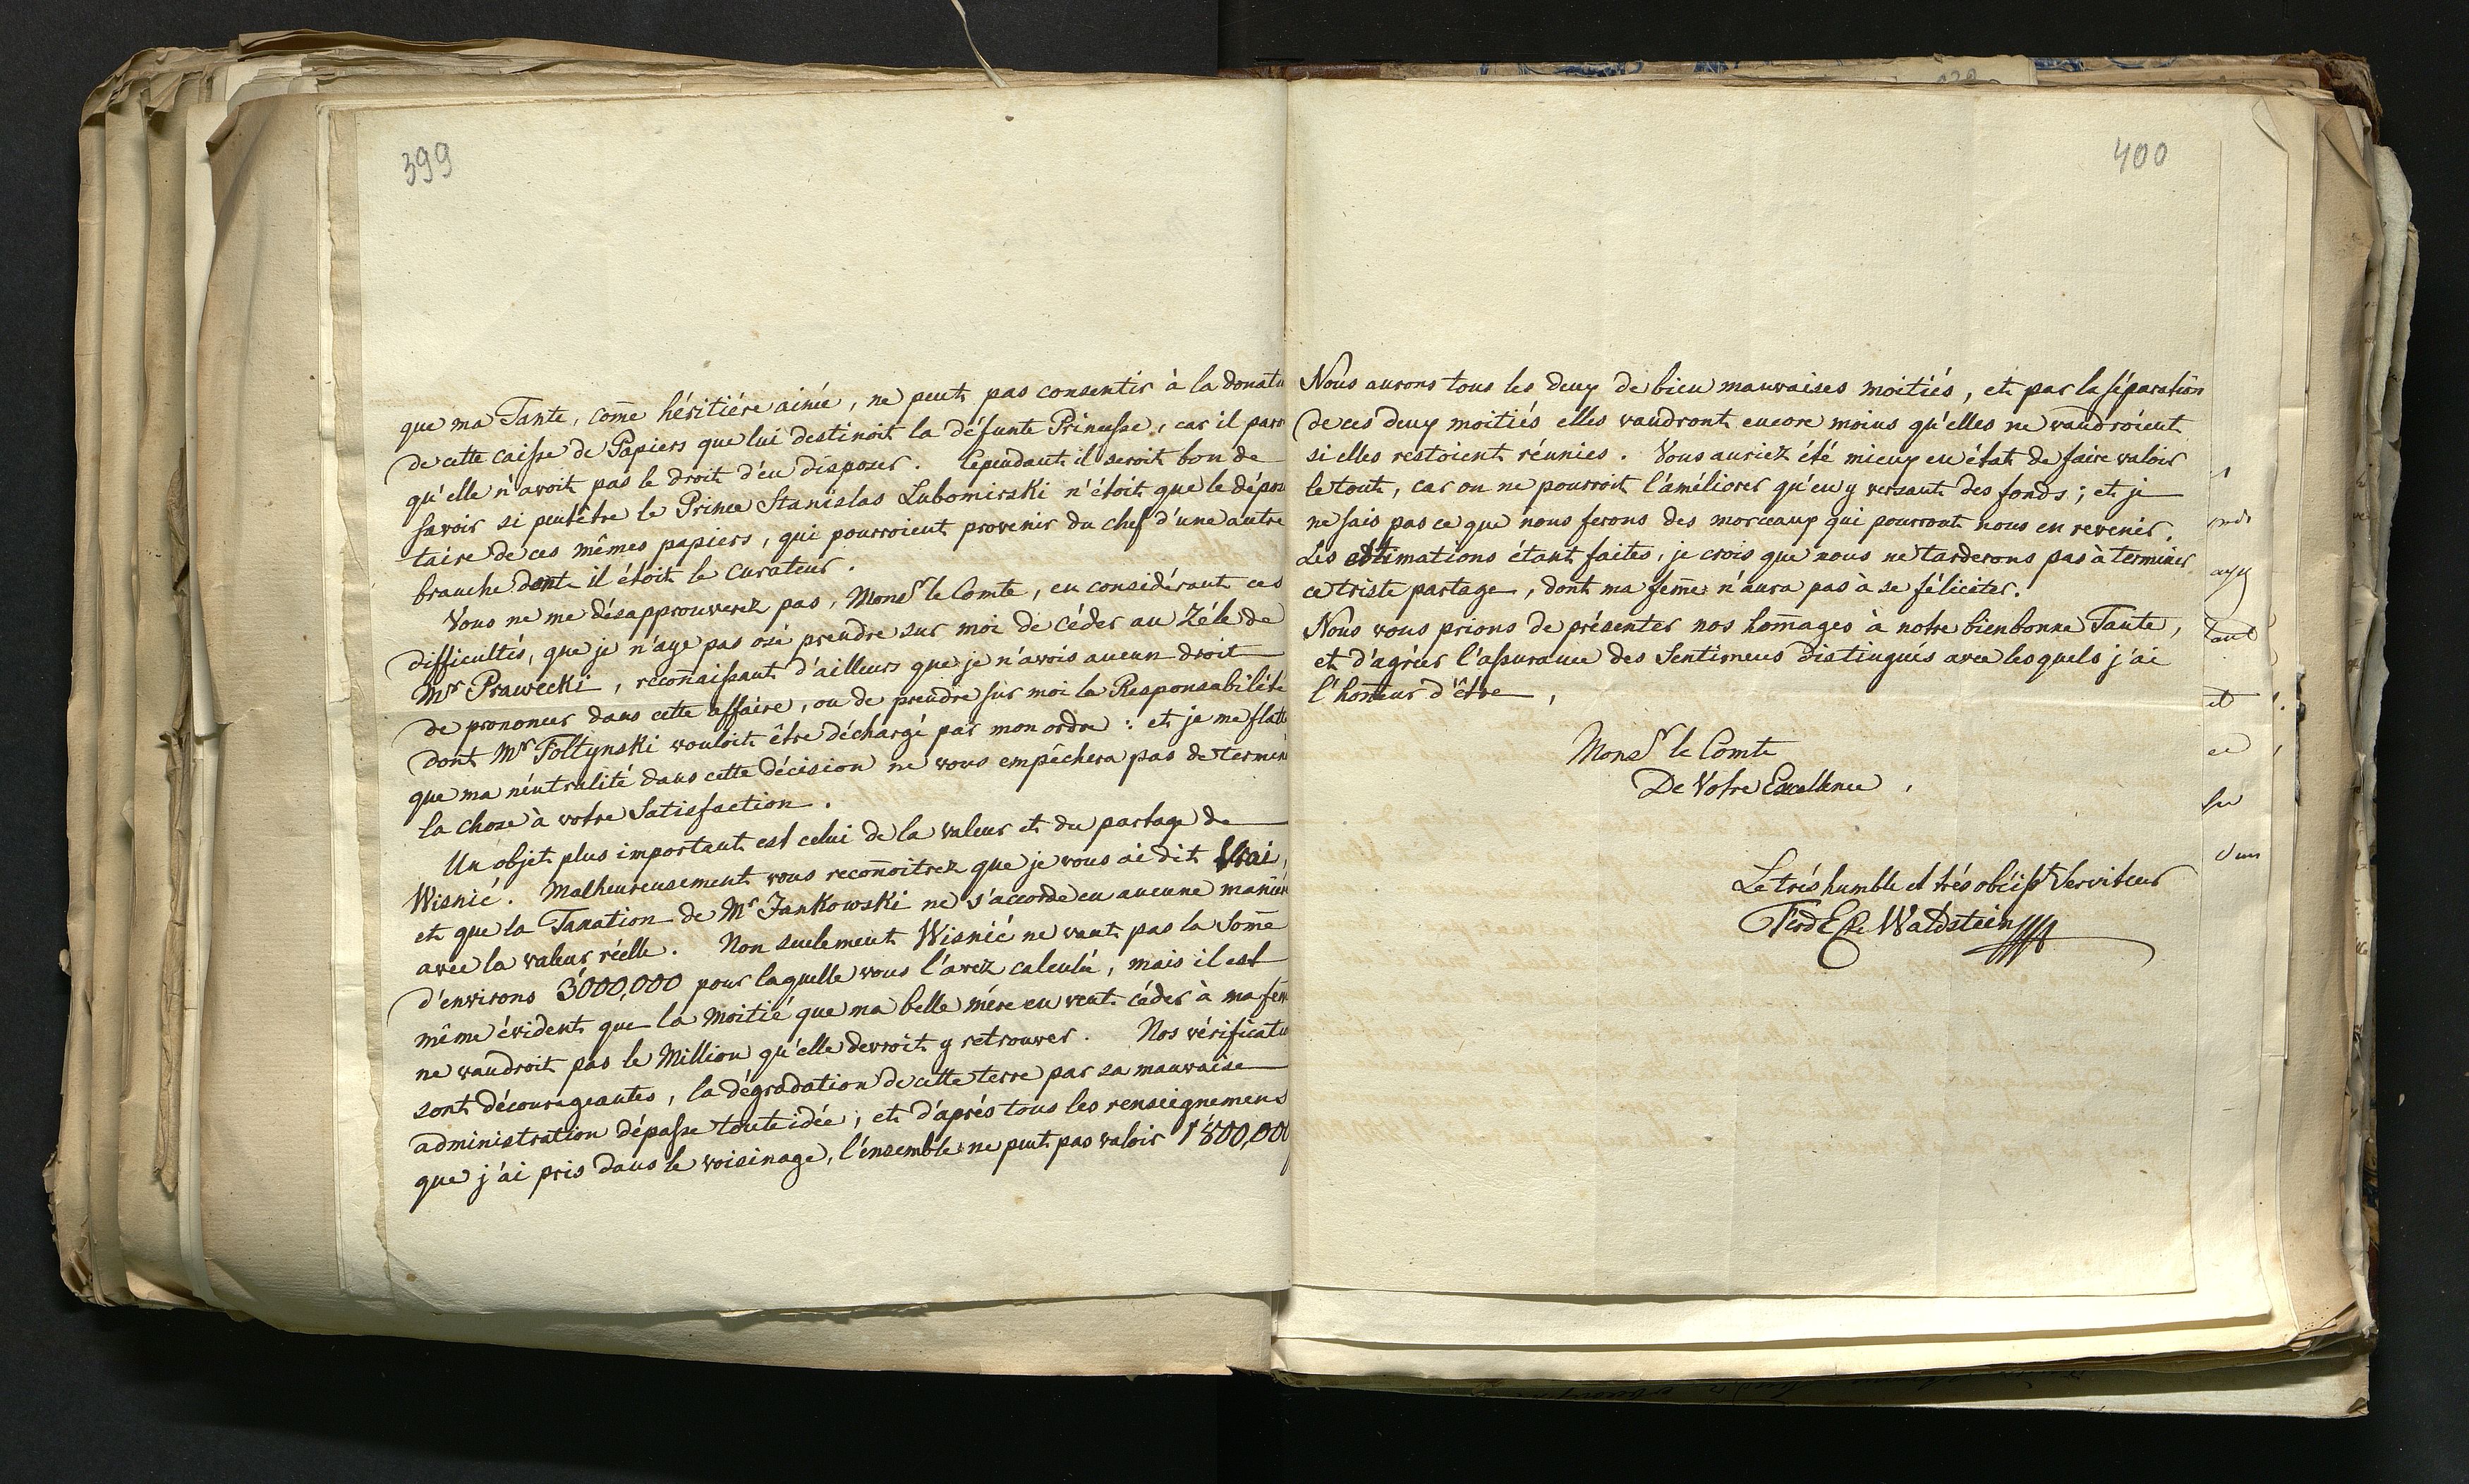 399
que ma Tante, come héritiére ainée, ne peut pas consentir à la donatu
de cette caisse de Papiers que lui destinoit la défunte Princesse, car il paro
qu'elle n'avoit pas le droit d'en disposer. Cependant il seroit bon de
savoir si peutêtre le Prince Stanislas Lubomirski n'étoit que le dépos
taire de ces mêmes papiers, qui pourroient provenir du chef d'une autre
branche dont il étoit le Curateur.
Vous ne me désapprouverez pas, Monsr le Comte, en considérant ces
difficultés, que je n'aye pas osé prendre sur moi de céder au Zéle de
Mr Prawecki, reconaissant d'ailleurs que je n'avois aucun droit
de prononcer dans cette affaire, ou de prendre sur moi la Responsabilité
dont Mr Foltynski vouloit être déchargé par mon ordre: et je me flatte
que ma néutralité dans cette décision ne vous empêchera pas de termin
la chose à votre Satisfaction.
Un objet plus important est celui de la valeur et du partage de
Wisnić. Malheureusement vous reconoitrez que je vous ai dit Vrai,
et que la Taxation de Mr Jankowski ne s'accorde en aucune maniér
avec la valeur réelle. Non seulement Wisnić ne vaut pas la Some
d'environs 3'000,000 pour laquelle vous l'avez calculée, mais il est
même évident que la moitié que ma belle mére en veut céder à ma fem
ne vaudroit pas le Million qu'elle devroit y retrouver. Nos vérificatu
sont décourageantes, la dégradation de cette terre par sa mauvaise
administration dépasse toute idée; et d'aprés tous les renseignemens
que j'ai pris dans le voisinage, l'ensemble ne peut pas valoir 1'800,000
400
Nous aurons tous les deux de bien mauvaises moitiés, et par la séparation
de ces deux moitiés elles vaudront encore moins qu'elles ne vaudroient
si elles restoient réunies. Vous auriez été mieux en état de faire valoir
le tout, car on ne pourroit l'améliorer qu'en y versant des fonds; et je
ne sais pas ce que nous ferons des morceaux qui pourront nous en revenir.
Les estimations étant faites, je crois que nous ne tarderons pas à terminer
ce triste partage, dont ma feme n'aura pas à se féliciter.
Nous vous prions de présenter nos homages à notre bien bonne Tante,
et d'agréer l'assurance des Sentimens distingués avec lesquels j'ai
l'honeur d'être,
Monsr le Comte
De Votre Excellence,
Le trés humble et trés obéisst Serviteur
Ferd Waldstein